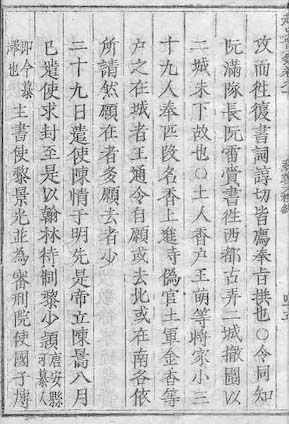 攻而徃復書詞諄切皆廌奉㫖撰也○令同知
阮滿隊長阮雷賫書徃西都古弄二城撤圍以
二城未下故也○土人香户王萌等將家小三
十九人奉匹段名香上進時偽官土軍金香等
户之在城者王通令自願或去北或在南各依
所請然願在者多願去者少
二十九日遣使陳情于明先是帝立陳暠八月
已遣使求封至是以翰林特制黎少頴唐安縣可慕人
即今慕澤也主書使黎景光並為審刑院使國子博